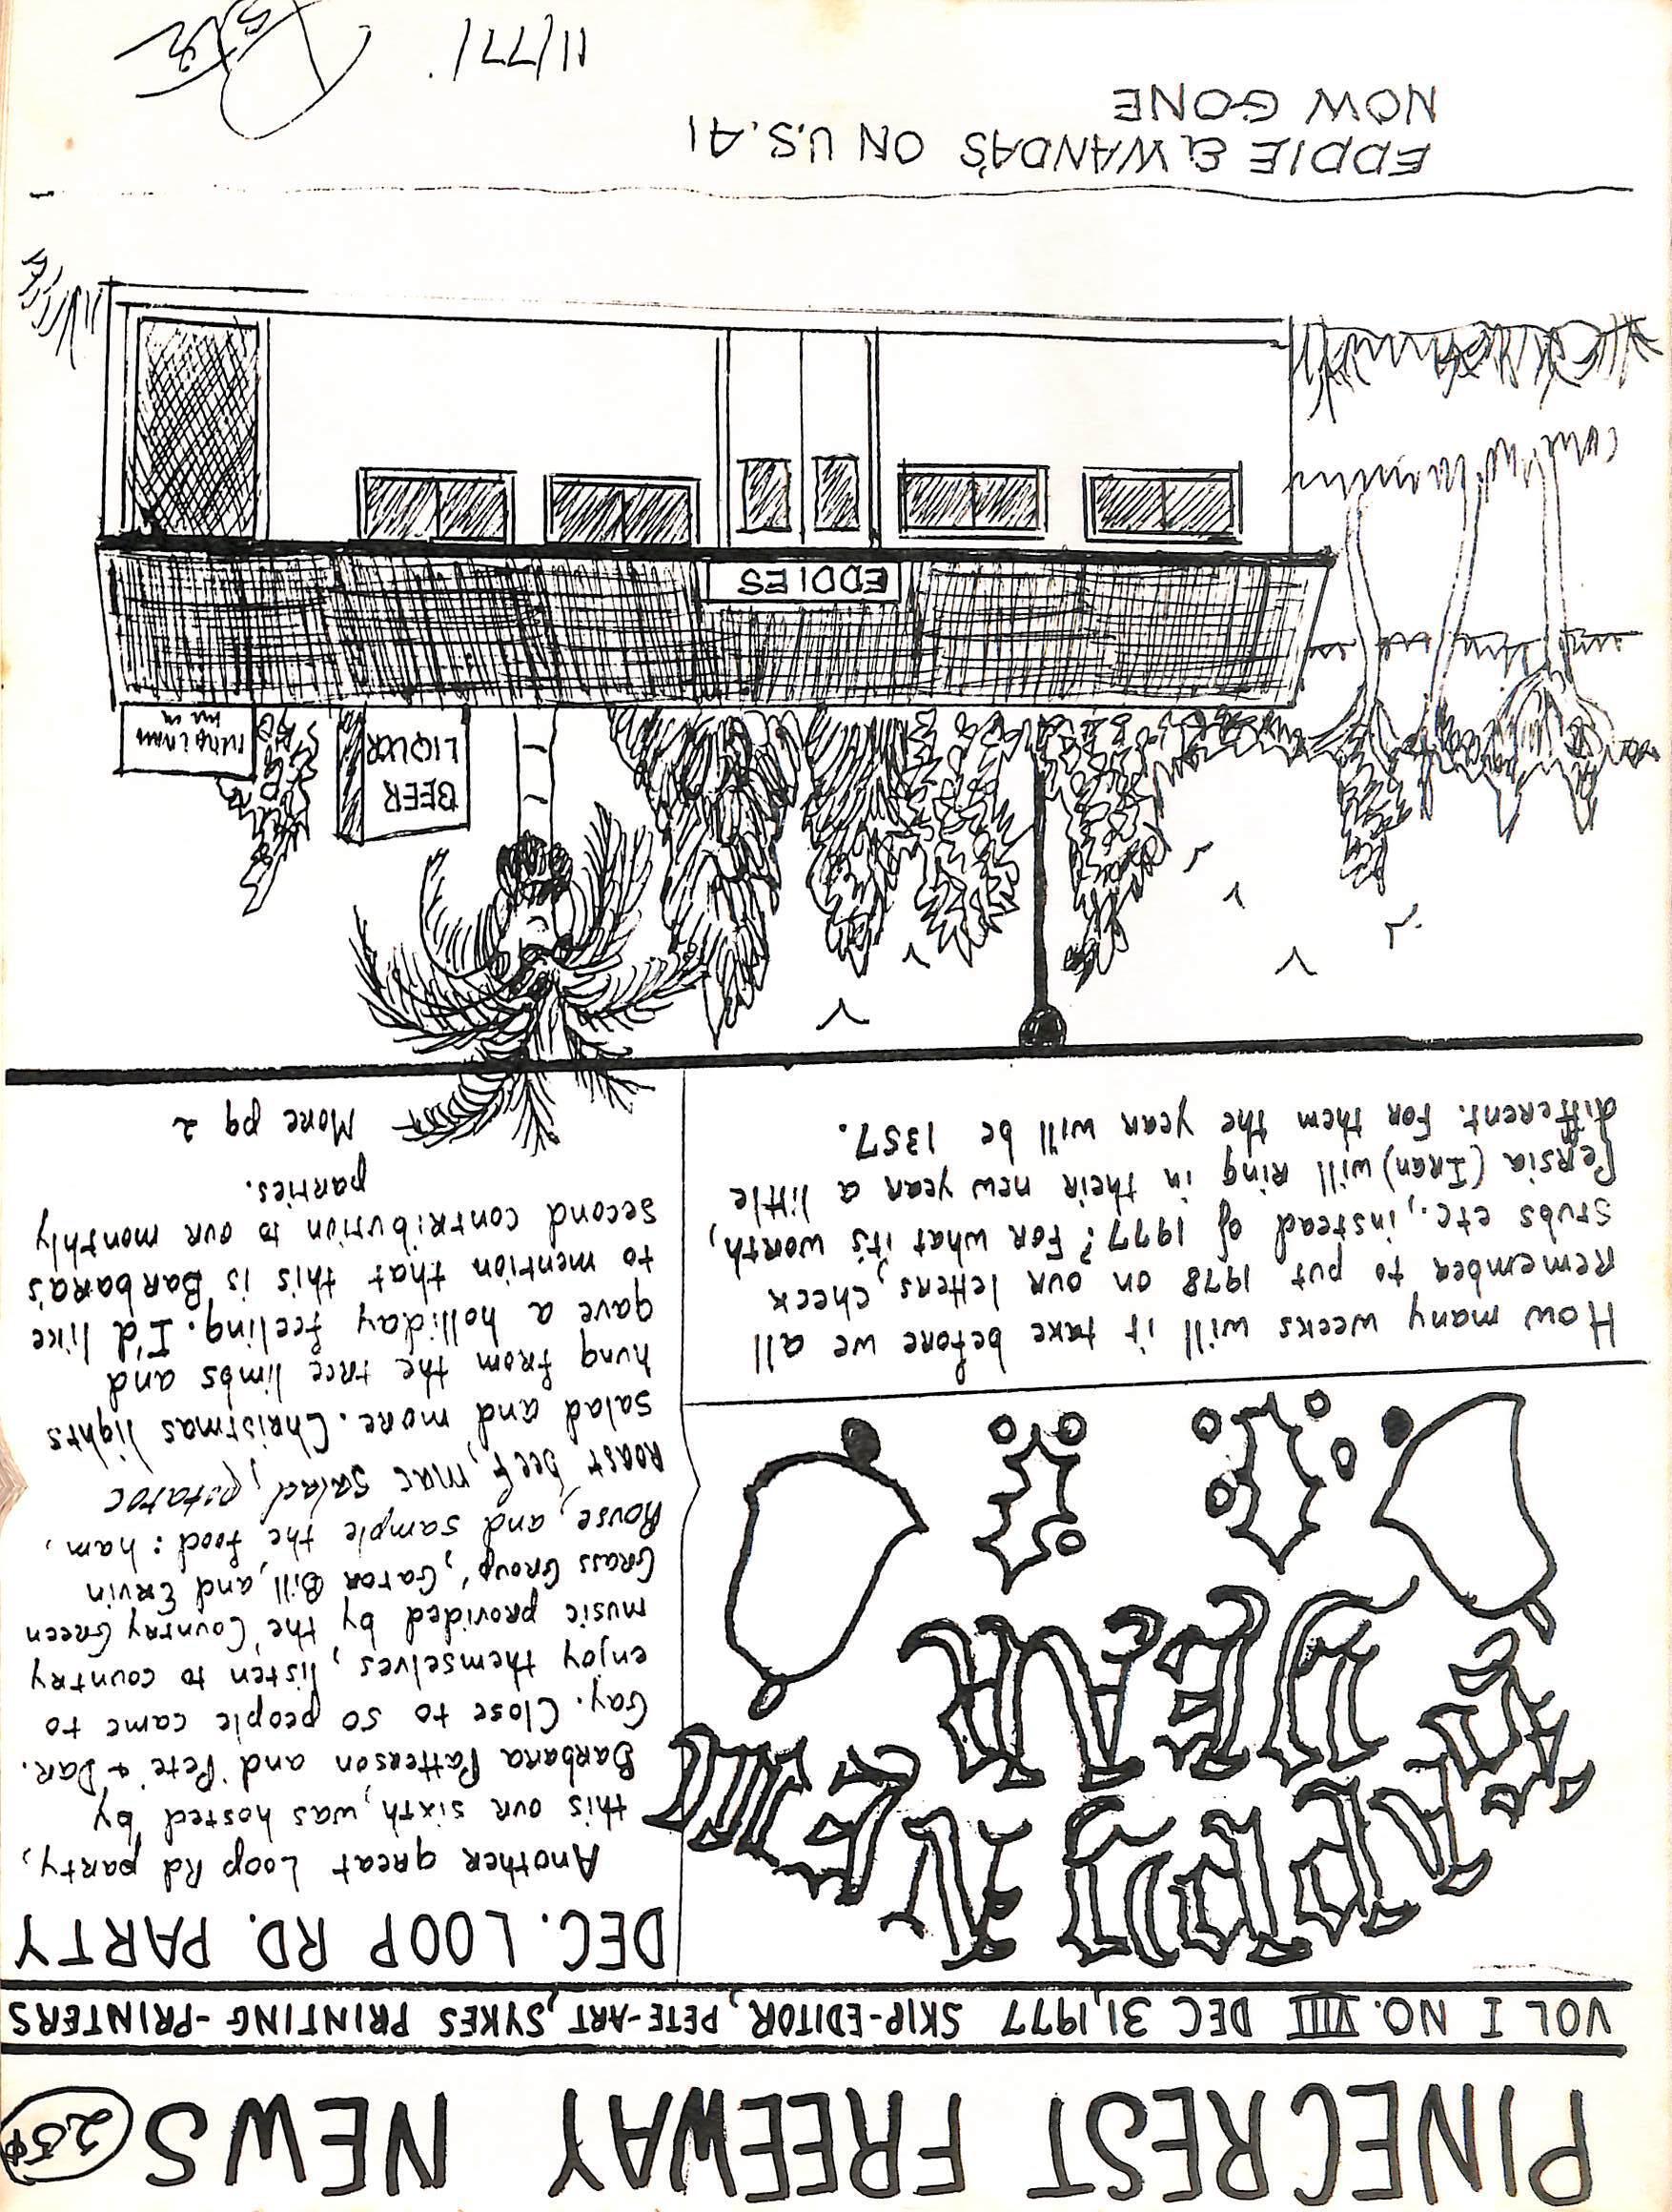 PINECREST FREEWAY NEWS 25¢
VOL I NO. VIII DEC 31, 1977 SKIP-EDITOR, PETE-ART, SYKES PRINTING-PRINTERS
Happy New
Year
How many weeks will it take before we all
remember to put 1978 on our letters, check
stubs etc., instead of 1977? For what it's worth,
Persia (Iran) will ring in their new year a little
different. For them the year will be 1357.
DEC. LOOP RD. PARTY
Another great Loop Rd party,
this our sixth, was hosted by
Barbara Patterson and 'Pete & Dar.
Gay. Close to 50 people came to
enjoy themselves, listen to country
music provided by the 'Country Green
Grass Group', Gator Bill, and Ervin
Rouse, and sample the food: ham,
roast beef, mac salad, potatoe
salad and more. Christmas lights
hung from the tree limbs and
gave a holliday feeling. I'd like
to mention that this is Barbara's
second contribution to our monthly
parties.
More pg 2
BEER
LIQUOR
EDDIES
EDDIE & WANDA'S ON U.S. 41
NOW GONE
11/77/